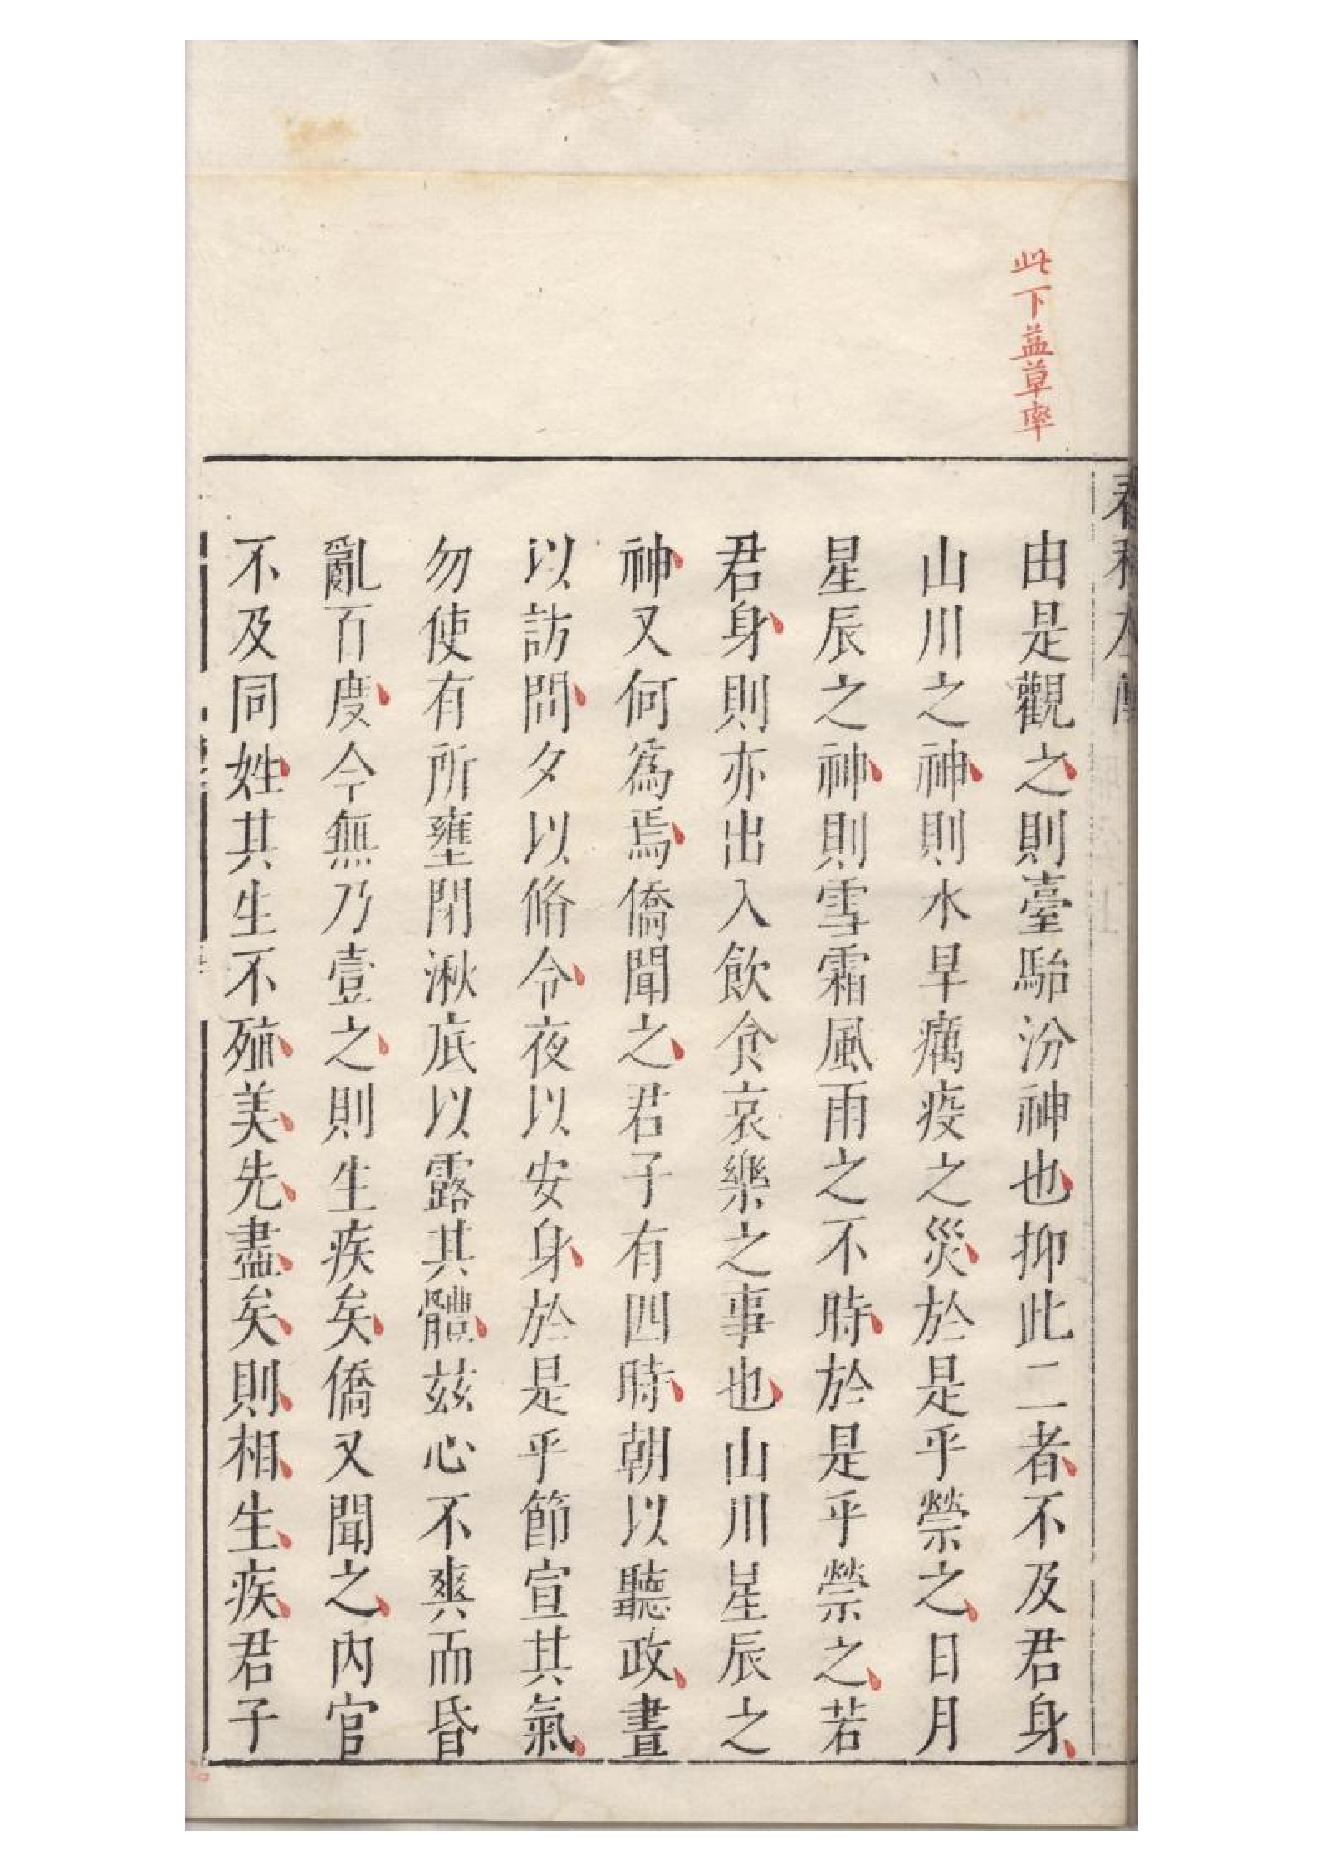 此下益草率
由是觀之則臺駘汾神也抑此二者不及君身
山川之神則水旱癘疫之災於是乎禜之日月
星辰之神則雪霜風雨之不時於是乎禜之若
君身則亦出入飲食哀樂之事也山川星辰之
神又何爲焉僑聞之君子有四時朝以聽政晝
以訪問夕以脩令夜以安身於是乎節宣其氣
勿使有所壅閉湫底以露其體兹心不爽而昏
亂百度今無乃壹之則生疾矣僑又聞之內官
不及同姓其生不殖美先盡矣則相生疾君子